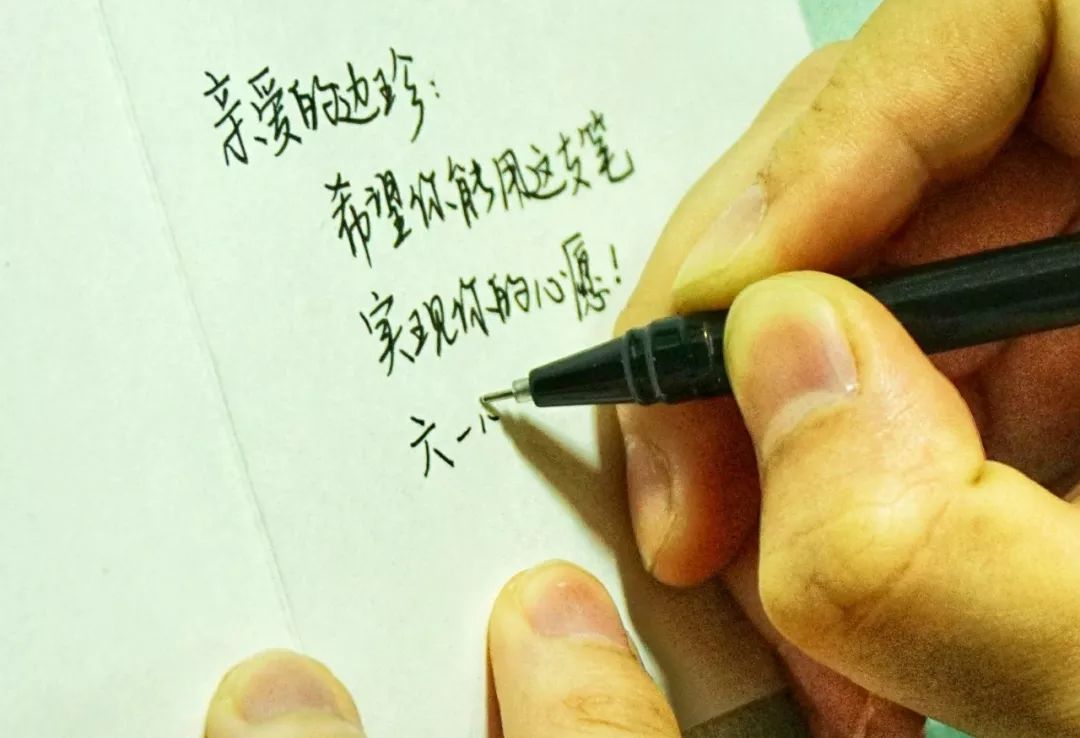 亲爱的边珍:
希望你能用这支笔
实现你的心愿!
六一